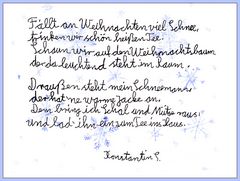 Fällt an Weihnachten viel Schnee,
trinken wir schön heißen Tee.
Schaun wir auf den Weihnachtsbaum
der da leuchtend steht im Raum.
Draußen steht mein Schneemann,
der hat ne warme Jacke an.
Dem bring ich Schal und Mütze raus
und lad ihn ein zum Tee ins Haus.
Konstantin S.